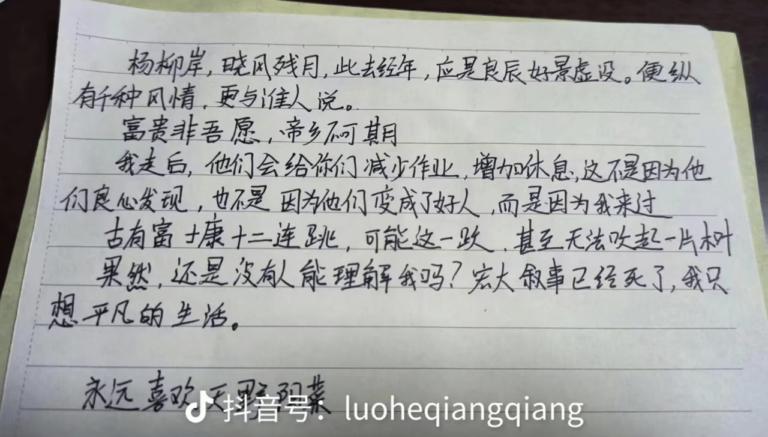 杨柳岸，晓风残月，此去经年，应是良辰好景虚设。便纵
有千种风情，更与谁人说。
富贵非吾愿，帝乡不可期
我走后，他们会给你们减少作业，增加休息，这不是因为他
们良心发现，也不是因为他们变成了好人，而是因为我来过
古有富士康十二连跳，可能这一跃，甚至无法吹起一片树
果然，还是没有人能理解我吗？宏大叙事已经死了，我只
想平凡的生活。
永远喜欢天野阳菜
抖音号：luoheqiangqiang